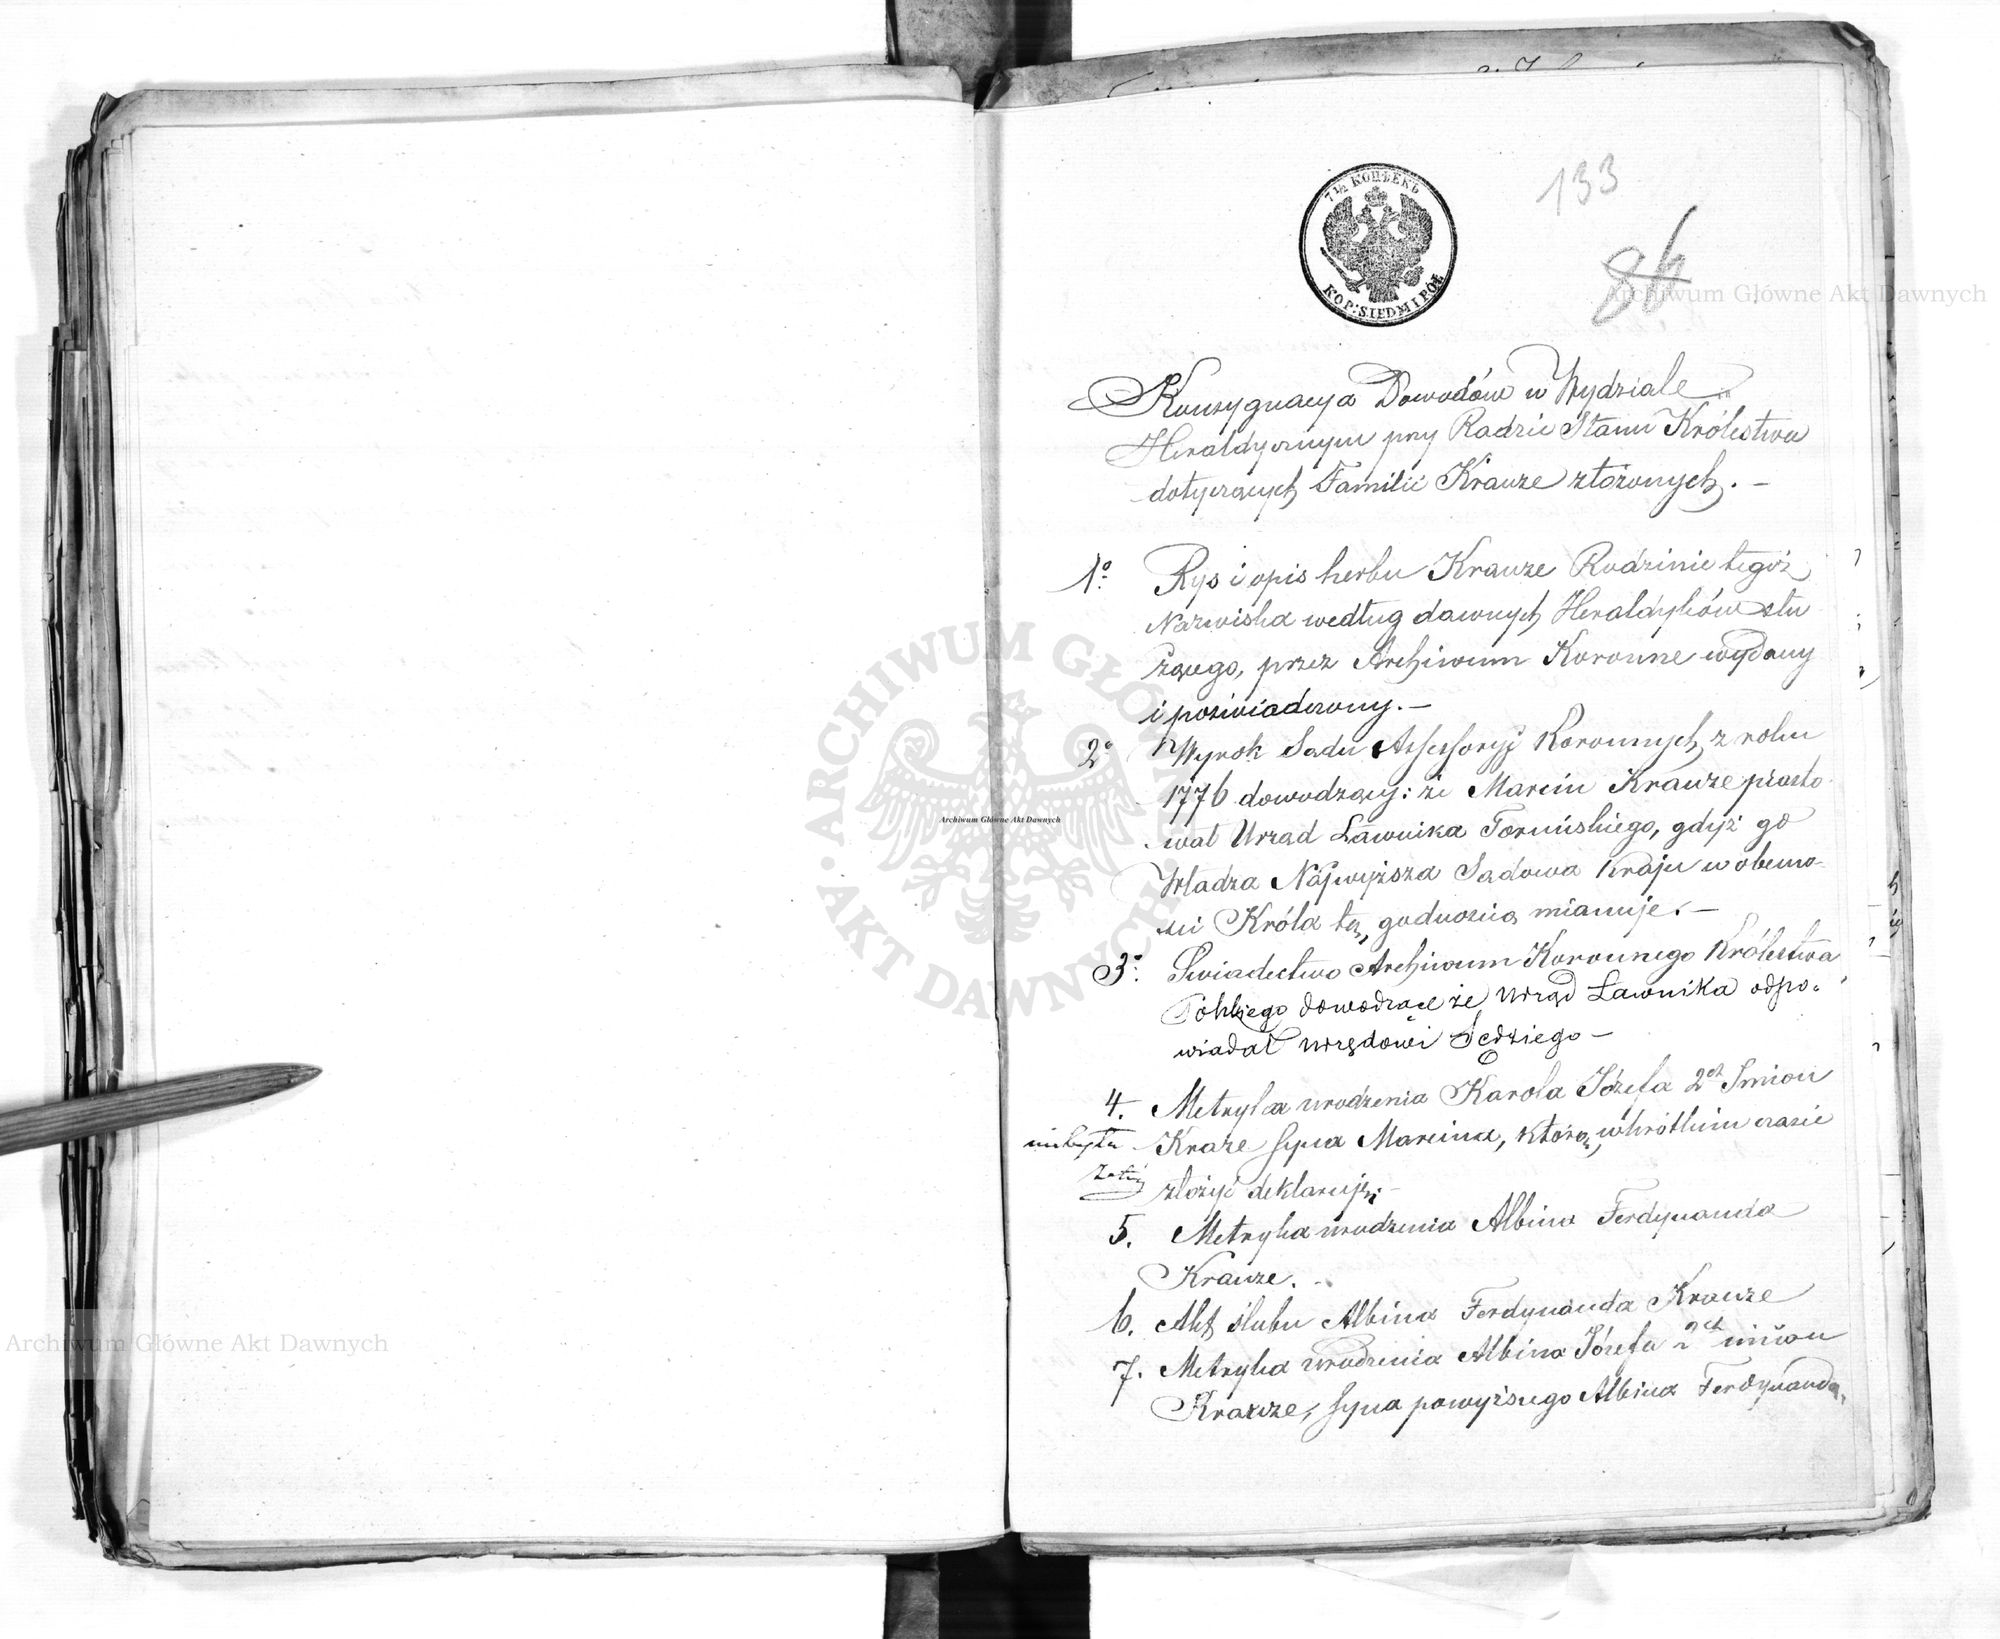 7½ КОПѢЕКЪ
KOP: SIEDM I PÓŁ
133
86
Konsygnacya Dowodów w Wydziale
Heraldycznym przy Radzie Stanu Królestwa
dotyczących Familii Krauze złożonych. —
1º Rys i opis herbu Krauze Rodzinie tegoż
Nazwiska według dawnych Heraldyków słu
żącego, przez Archiwum Koronne wydany
i poświadczony. —
2º Wyrok Sądu Assessoryi Koronnych z roku
1776 dowodzący: że Marcin Krauze piasto-
wał Urząd Ławnika Toruńskiego, gdyż go
Władza Najwyższa Sądowa Kraju w obecno-
ści Króla tą godnością mianuje. —
3º Świadectwo Archiwum Koronnego Królestwa
Polskiego dowodzące że Urząd Ławnika odpo-
wiadał urzędowi Sędziego —
4. Metryka urodzenia Karola Józefa 2ch Imion
Kraze syna Marcina, którą w krótkim czasie
złożyć deklaruje —
5. Metryka urodzenia Albina Ferdynanda
Krauze. —
6. Akt ślubu Albina Ferdynanda Krauze
7. Metryka urodzenia Albina Józefa 2ch imion
Krauze, syna powyższego Albina Ferdynanda.
Archiwum Główne Akt Dawnych
Archiwum Główne Akt Dawnych
Archiwum Główne Akt Dawnych
ARCHIWUM GŁÓWNE AKT DAWNYCH